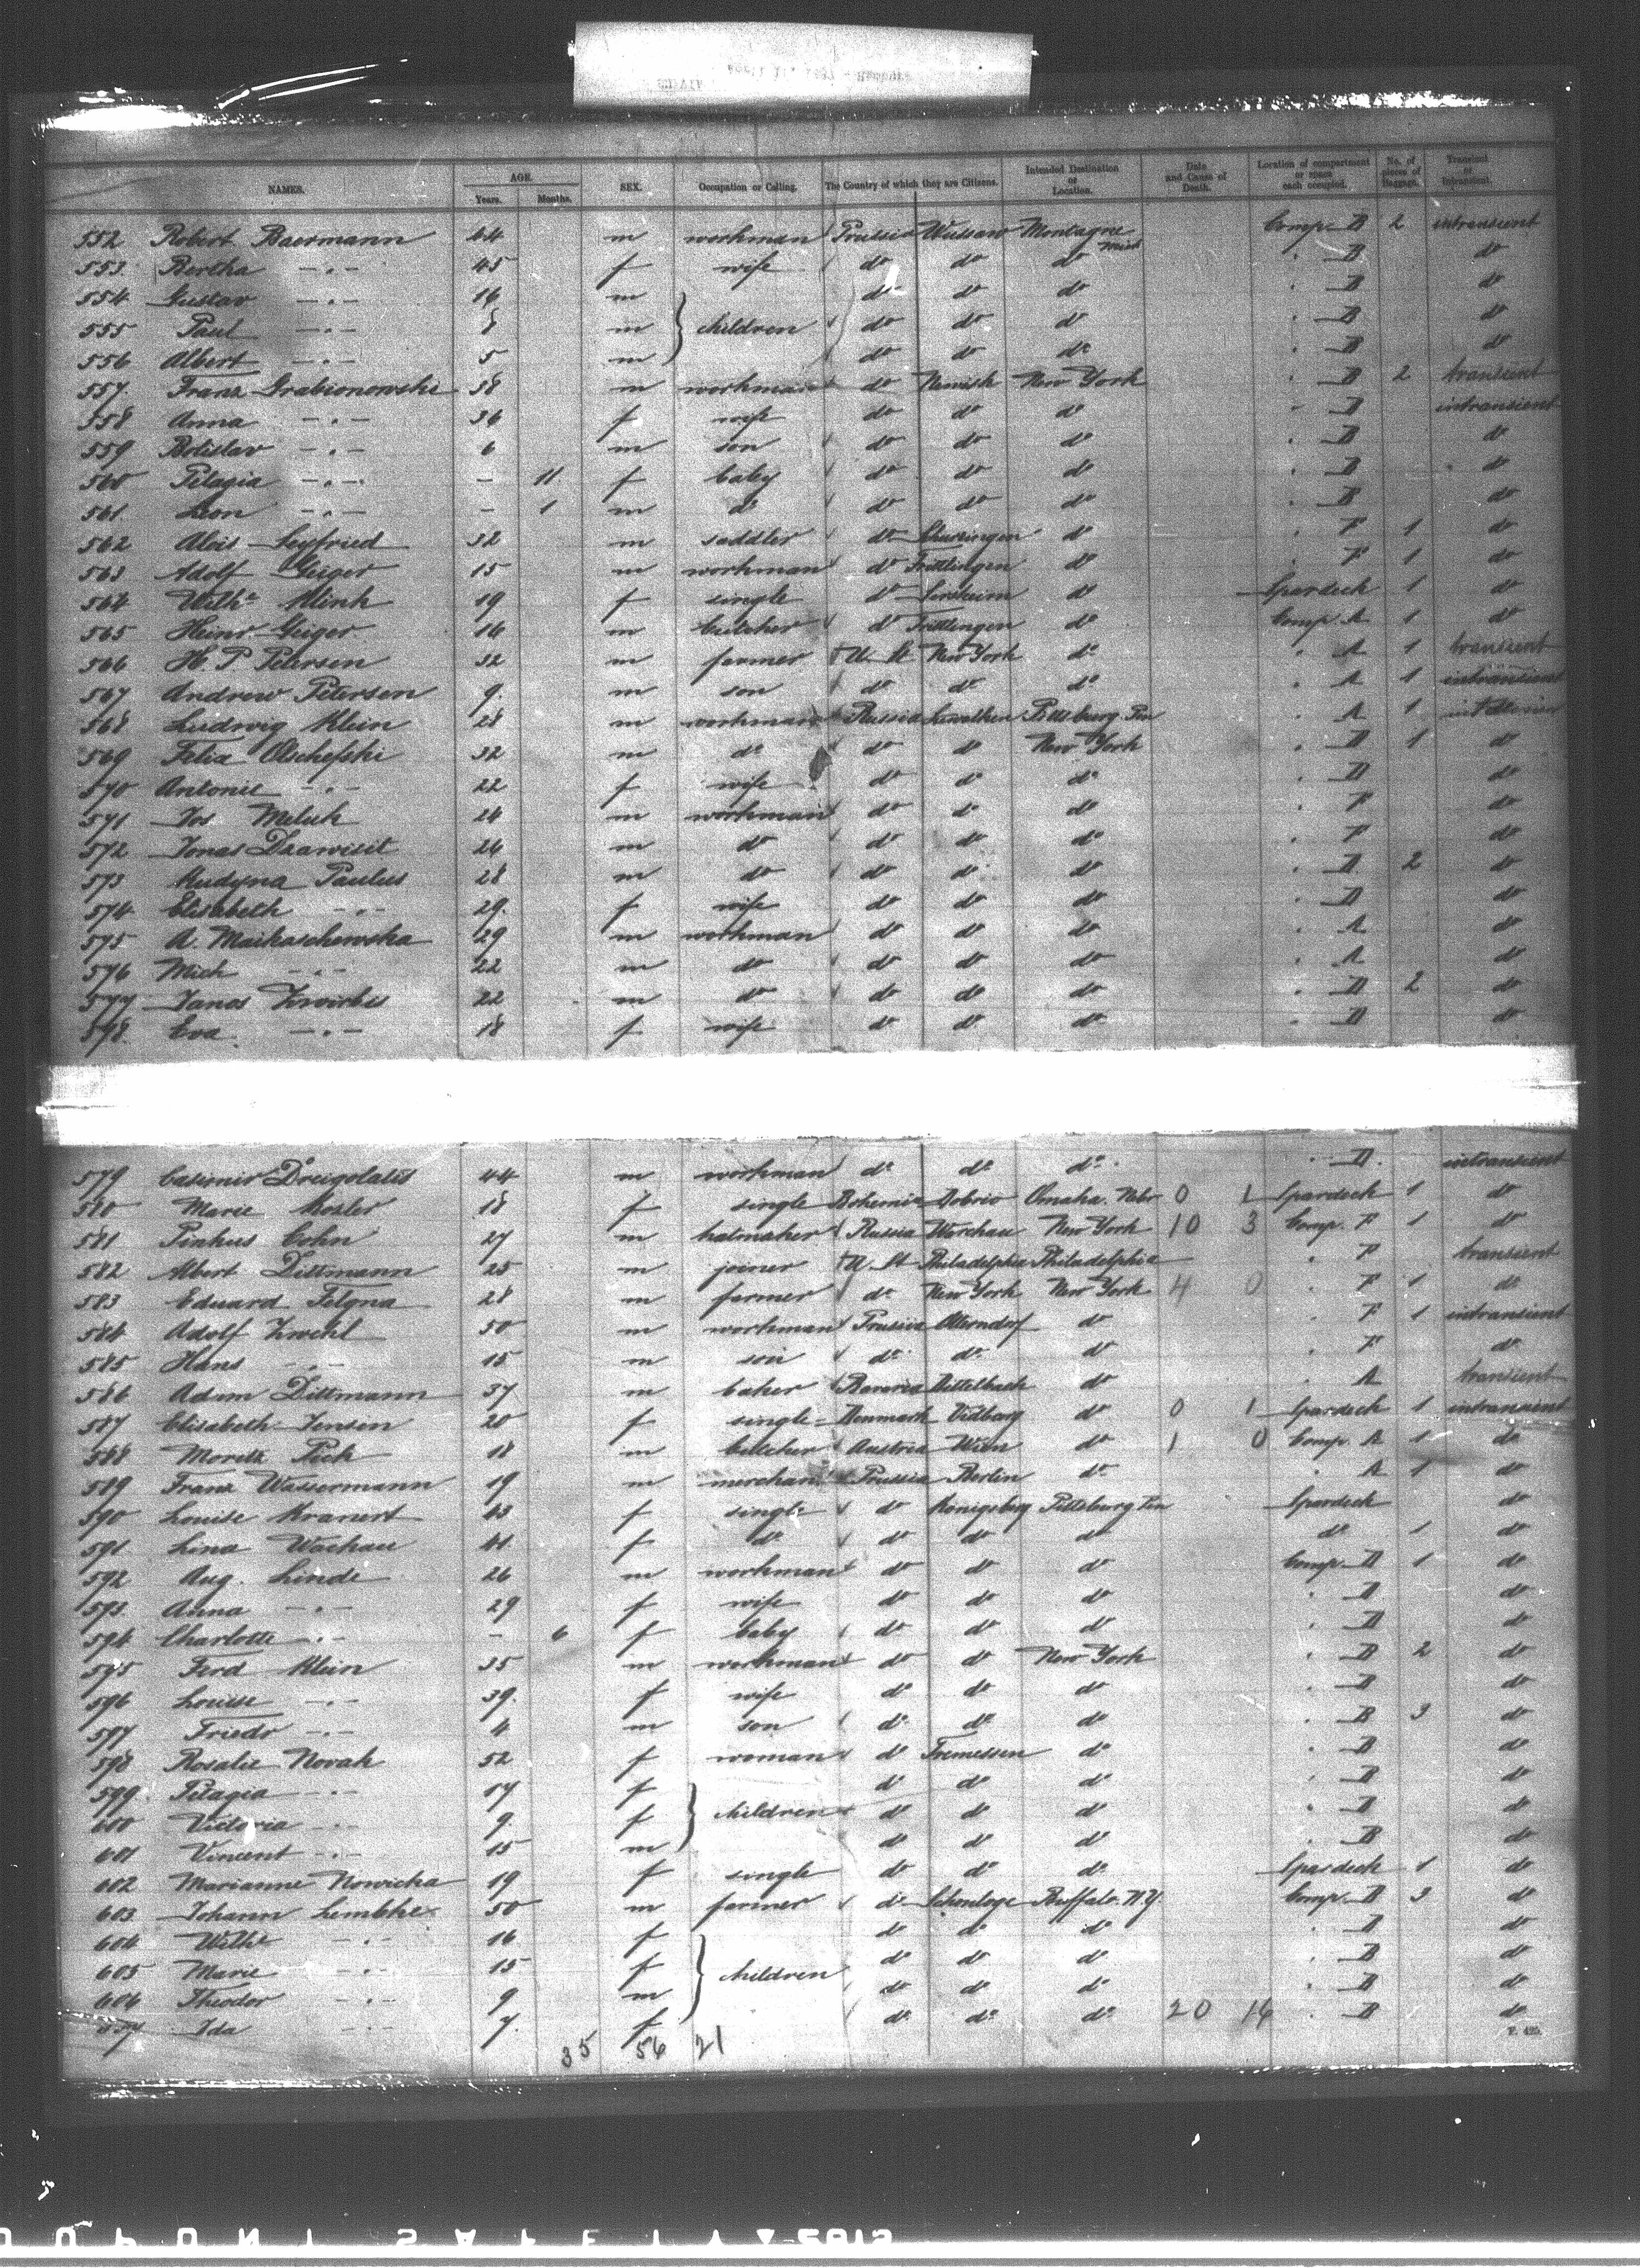 NAMES. AGE. Years. Months. SEX. Occupation or Calling. The Country of which they are Citizens. Intended Destination or Location. Date and Cause of Death. Location of compartment or space each occupied. No. of pieces of Baggage. Transient or Intransient.
552 Robert Baermann 44 m workman Prussia Wussow Montague Mich Comp. B 2 intransient
553 Bertha -"- 45 f wife do do do " B do
554 Gustav -"- 16 m do do do " B do
555 Paul -"- 8 m } children do do do " B do
556 Albert -"- 5 m do do do " B do
557. Franz Grabionowski 38 m workman do New York " B 2 transient
558 Anna -"- 36 f wife do do do " B intransient
559 Bolislav -"- 6 m son do do do " B do
560 Pelagia -"- - 11 f baby do do do " B do
561. Leon -"- - 1 m do do do do " B do
562 Alois Seyfried 32 m saddler do do " F 1 do
563 Adolf Geiger 15 m workman do Frittlingen do " F 1 do
564 Wilhe Klink 19 f single do do Spardeck 1 do
565 Heinr Geiger 16 m butcher do Frittlingen do Comp. A 1 do
566 H. P Petersen 32 m farmer U. St New York do " A 1 transient
567 Andrew Petersen 9 m son do do do " A 1 intransient
568 Ludwig Klein 28 m workman Russia Pittsburg Pen " A 1
569 Felix Olschefski 32 m do do do New York " D 1 do
570 Antonie -"- 22 f wife do do do " D do
571 Jos Meluk 24 m workman do do do " F do
572 Jonas Dzawisit 24 m do do do do " F do
573 Kudyna Paulus 28 m do do do do " D 2 do
574 Elisabeth -"- 29. f wife do do do " D do
575 A. Maikaschewska 29 m workman do do do " A do
576 Mich -"- 22 m do do do do " A do
577 Janos Zwirbes 22 m do do do do " D 2 do
578. Eva -"- 18 f wife do do do " D do
579 Casimir Dreigolatis 44 m workman do do do " D. intransient
580 Marie Kosler 18 f single Bohemia Dobrio Omaha. Nebr 0 1 Spardeck 1 do
581 Pinkus Cohn 27 m hatmaker Russia Warchau New York 10 3 Comp. F 1 do
582 Albert Dittmann 25 m joiner U. St Philadelphia Philadelphia " F transient
583 Eduard Felgna 28 m farmer do New York New York 4 0 " F 1 do
584 Adolf Zwehl 50 m workman Prussia Otterndorf do " F 1 intransient
585 Hans -"- 15 m son do do do " F do
586 Adam Dittmann 37 m baker Bavaria do " A transient
587 Elisabeth Jensen 20 f single Denmark Vidborg do 0 1 Spardeck 1 intransient
588 Moritz Pick 18 m butcher Austria Wien do 1 0 Comp. A 1 do
589 Franz Wassermann 19 m merchant Prussia Berlin do " A 1 do
590 Louise Kranert 43 f single do Konigsberg Pittsburg Pen Spardeck do
591 Lina Wachau 41 f do do do do do 1 do
592 Aug. Linde 26 m workman do do do Comp. D 1 do
593. Anna -"- 29 f wife do do do " D do
594 Charlotte -"- - 6 f baby do do do " D do
595 Ferd Klein 35 m workman do do New York " B 2 do
596 Louise -"- 39. f wife do do do " B do
597 Friedr -"- 4 m son do do do " B 3 do
598 Rosalie Novak 52 f woman do Tremessen do " B do
599. Pelagia -"- 17 f do do do " B do
600 Victoria -"- 9 f } children do do do " B do
601 Vincent -"- 15 m do do do " B do
602 Marianne Nowicka 19 f single do do do Spardeck 1 do
603 Johann Lembke 50 m farmer do Buffalo. N.Y. Comp. B 3 do
604 Wilhe -"- 16 f do do do " B do
605 Marie -"- 15 f } children do do do " B do
606 Theodor -"- 9 m do do do " B do
Ida -"- 7. f do do do 20 14 " B do
35 56 21
F. 425.